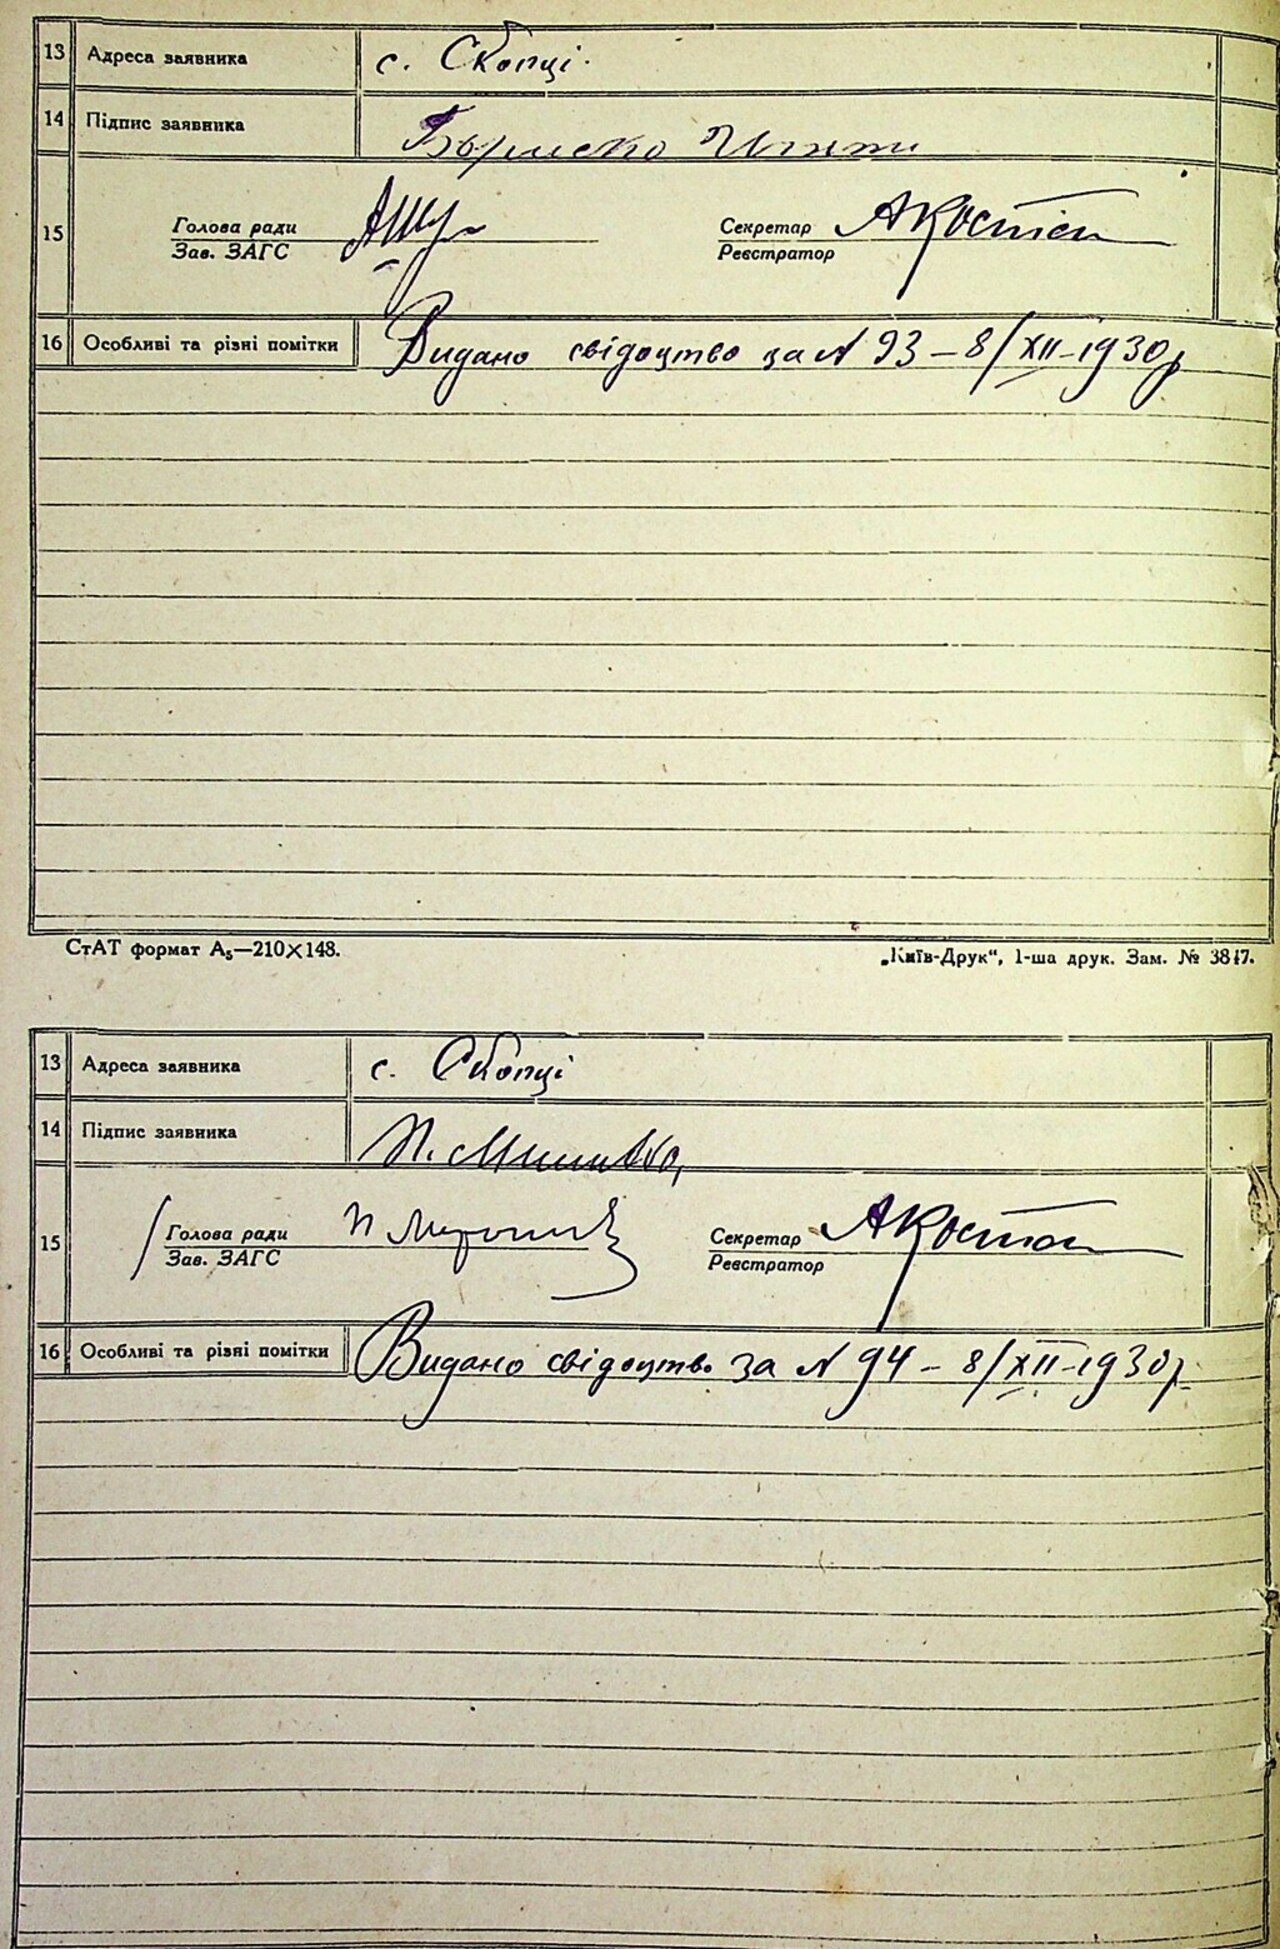 13 Адреса заявника с. Скопці.
14 Підпис заявника
15 Голова ради Секретар АКостюк
Зав. ЗАГС Реєстратор
16 Особливі та різні помітки Видано свідоцтво за № 93 – 8/XII–1930р
СтАТ формат А₅—210×148. „Київ-Друк“, 1-ша друк. Зам. № 3847.
13 Адреса заявника с. Скопці
14 Підпис заявника
15 Голова ради Секретар АКостюк
Зав. ЗАГС Реєстратор
16 Особливі та різні помітки Видано свідоцтво за № 94 – 8/XII–1930р.